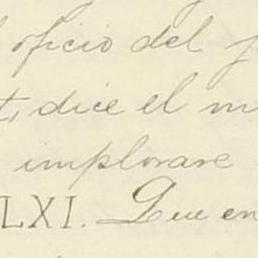 oficio del
dice el
implorare
LXI. Que en